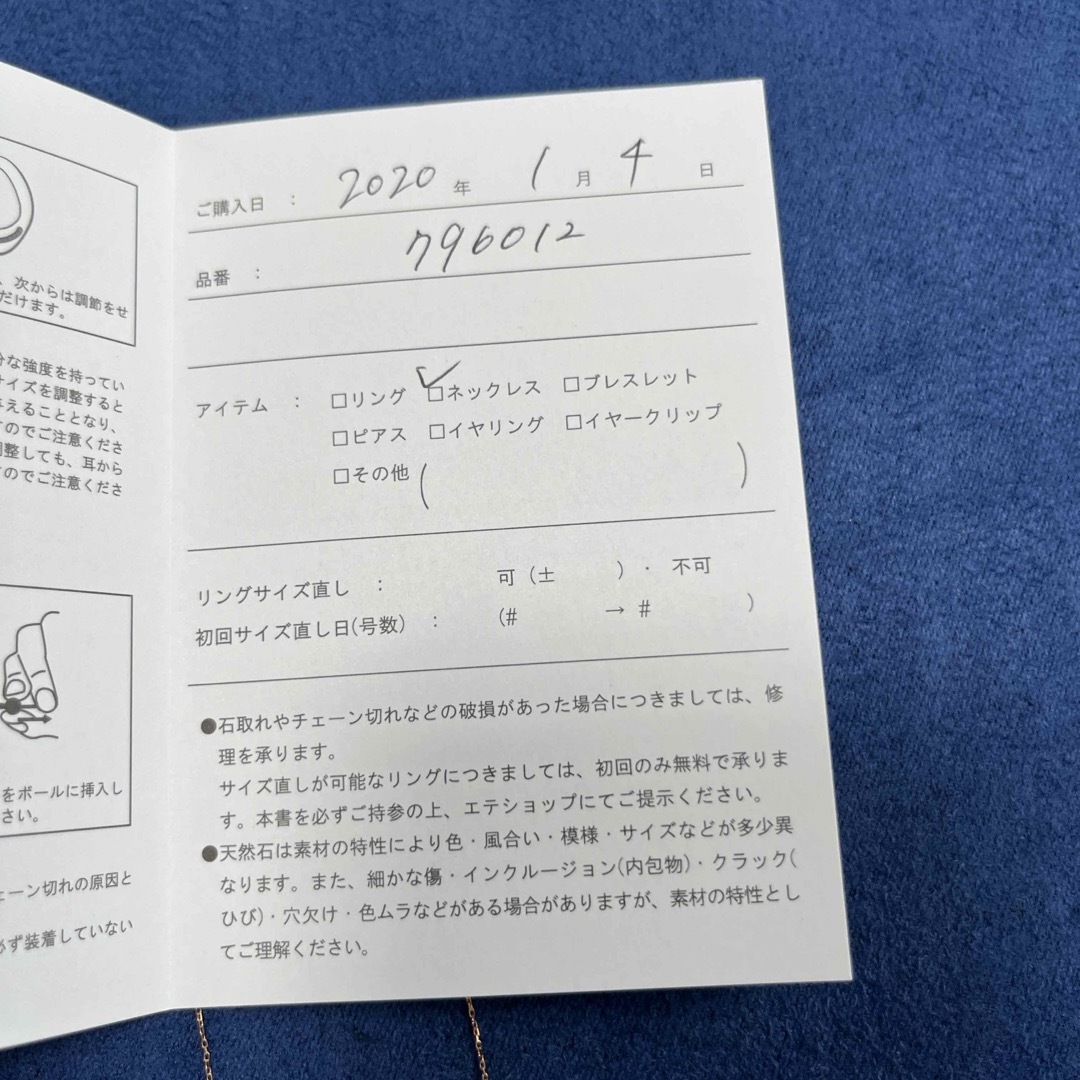 、次からは調節をせ
だけます。
分な強度を持ってい
サイズを調整すると
与えることとなり、
すのでご注意くださ
調整しても、耳から
のでご注意くださ
をボールに挿入し
さい。
ェーン切れの原因と
必ず装着していない
ご購入日 : 2020 年 1 月 4 日
品番 : 796012
アイテム : □リング ☑ネックレス □ブレスレット
□ピアス □イヤリング □イヤークリップ
□その他( )
リングサイズ直し : 可(± )・ 不可
初回サイズ直し日(号数) : (# → # )
●石取れやチェーン切れなどの破損があった場合につきましては、修
理を承ります。
サイズ直しが可能なリングにつきましては、初回のみ無料で承りま
す。本書を必ずご持参の上、エテショップにてご提示ください。
●天然石は素材の特性により色・風合い・模様・サイズなどが多少異
なります。また、細かな傷・インクルージョン(内包物)・クラック(
ひび)・穴欠け・色ムラなどがある場合がありますが、素材の特性とし
てご理解ください。